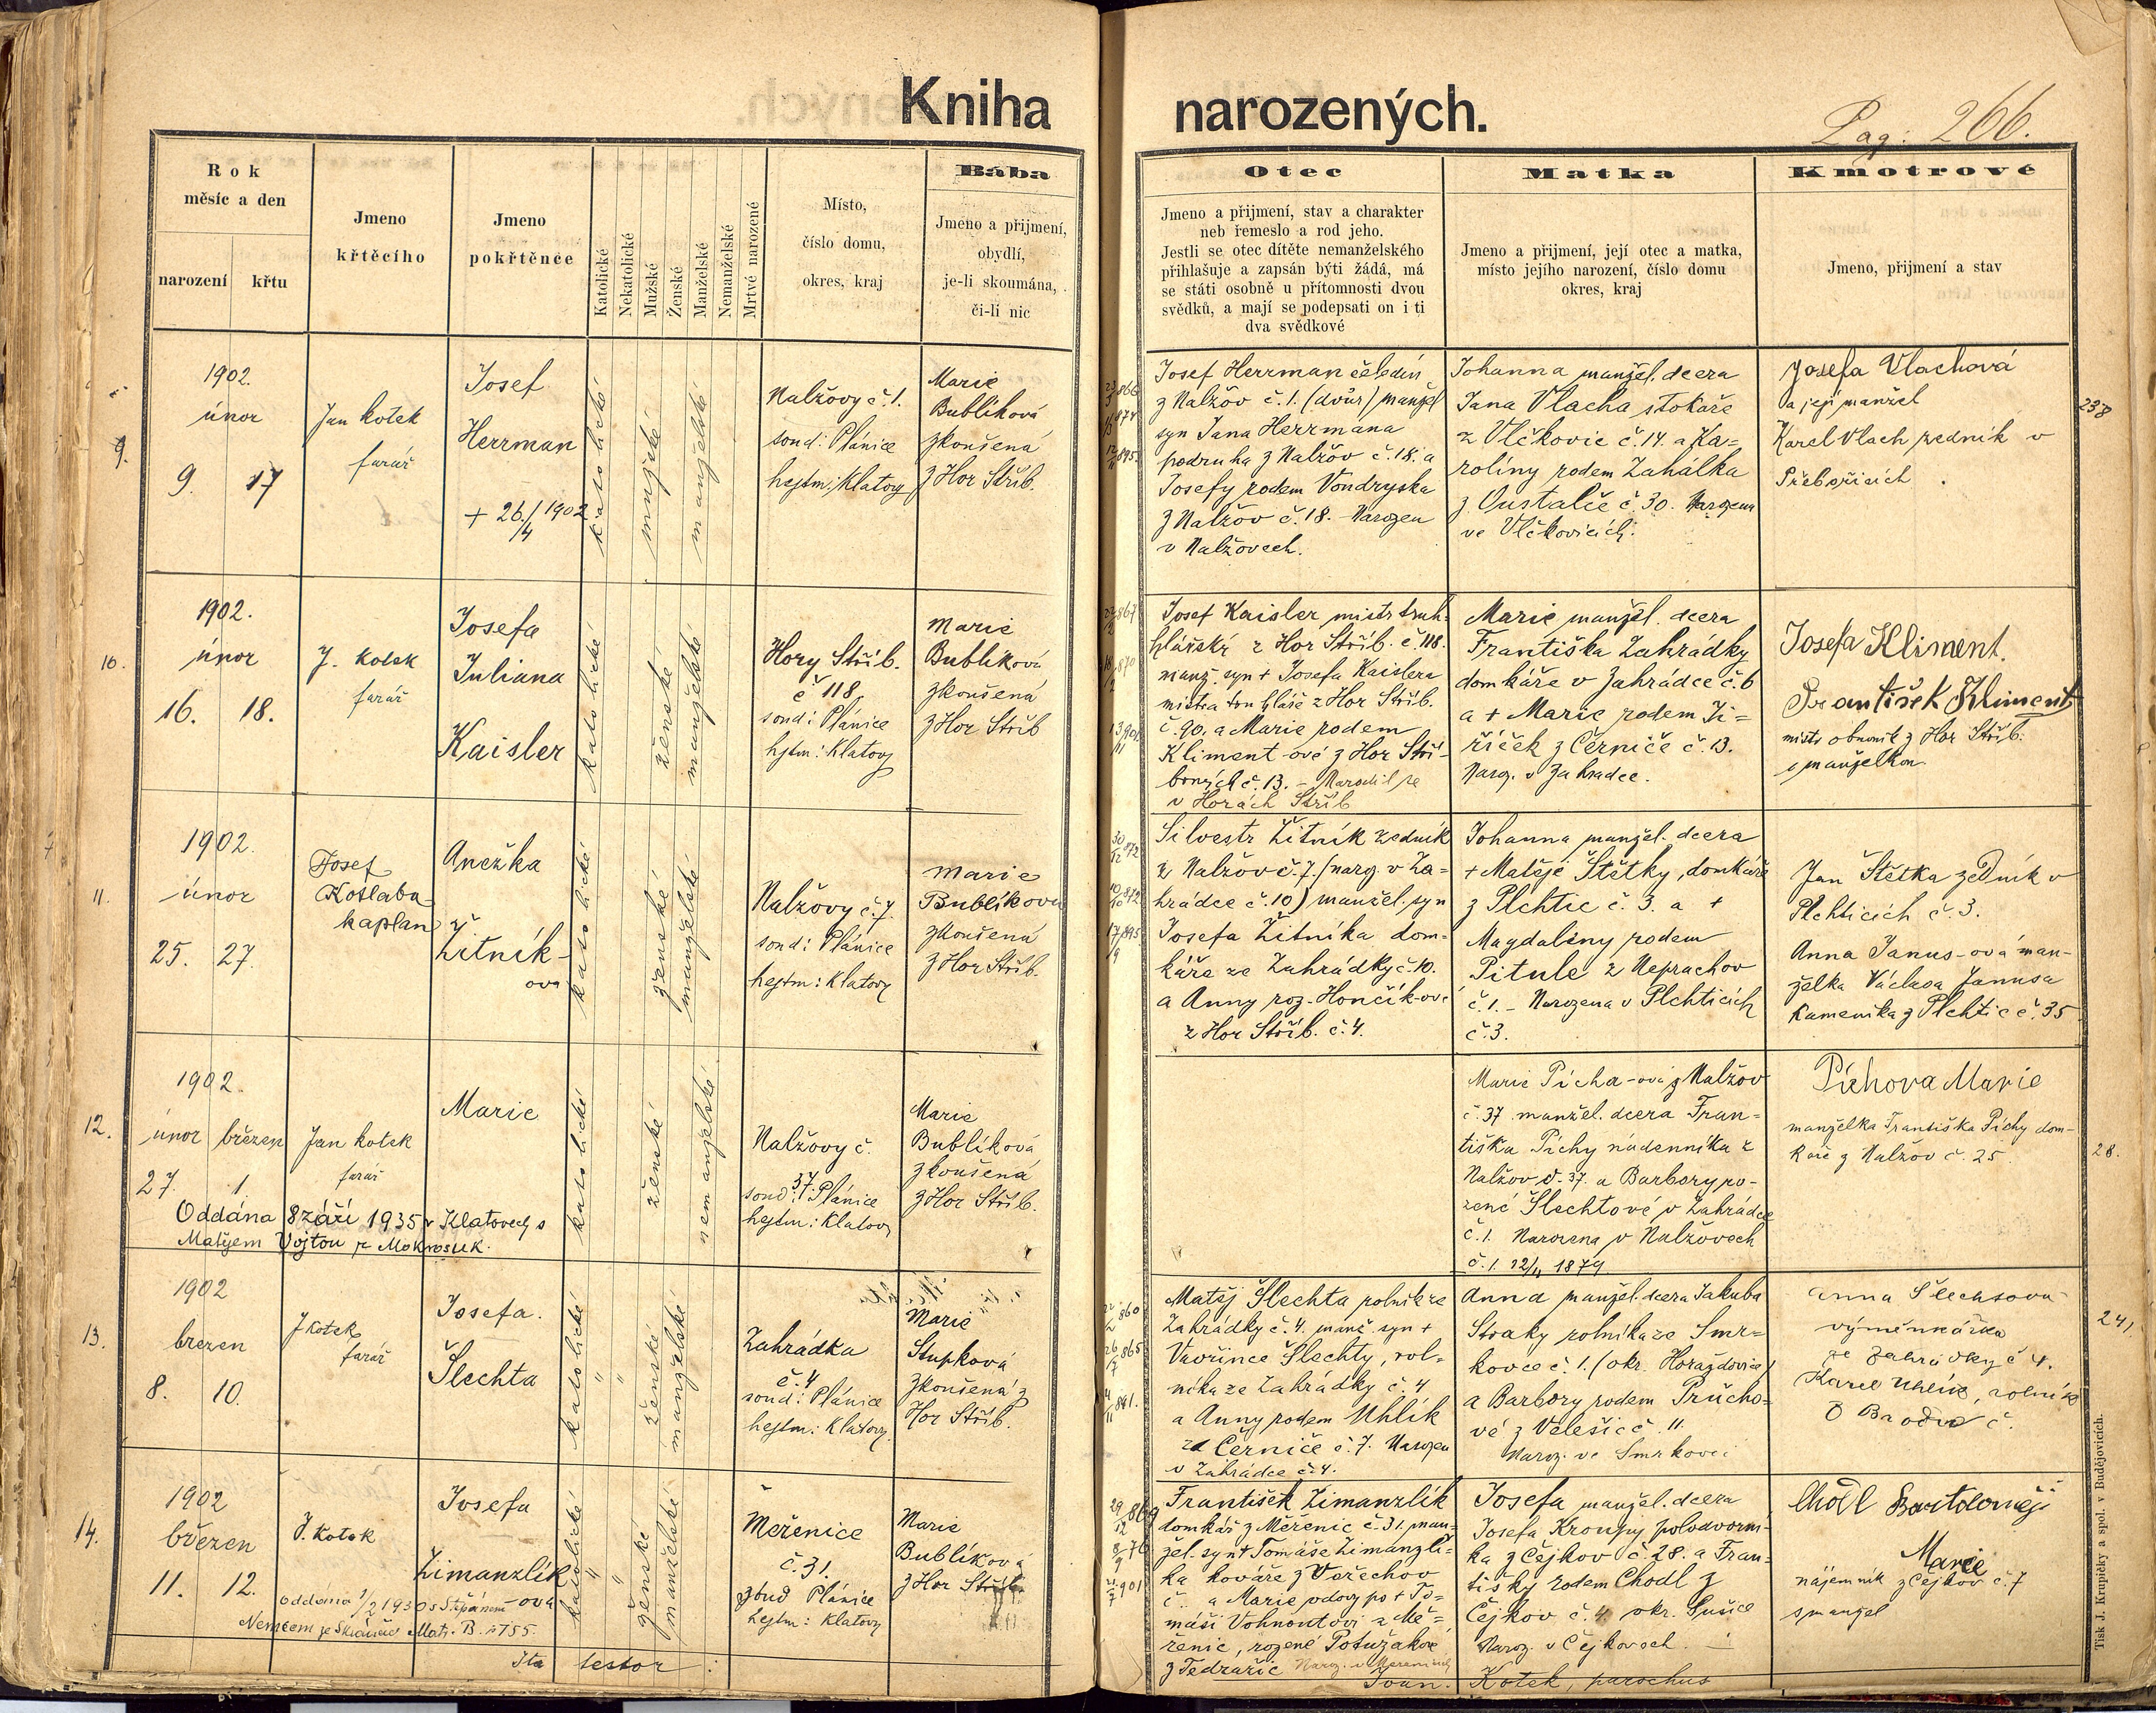 Kniha narozených.
Pag: 266.
Rok
měsíc a den
narození křtu
Jmeno
křtěcího
Jmeno
pokřtěnée
Katolické
Nekatolické
Mužské
Ženské
Manželské
Nemanželské
Mrtvé narozené
Místo,
číslo domu,
okres, kraj
Bába
Jmeno a přijmení,
obydlí,
je-li skoumána,
či-li nic
Otec
Jmeno a přijmení, stav a charakter
neb řemeslo a rod jeho.
Jestli se otec dítěte nemanželského
přihlašuje a zapsán býti žádá, má
se státi osobně u přítomnosti dvou
svědků, a mají se podepsati on i ti
dva svědkové
Matka
Jmeno a přijmení, její otec a matka,
místo jejího narození, číslo domu
okres, kraj
Kmotrové
Jmeno, přijmení a stav
9.
1902.
únor
9. 17
Jan Kotek
farář
Josef
Herrman
+ 26./4 1902
katolické
mužské
manželské
Nalžovy č. 1.
soud: Plánice
hejtm: Klatovy
Marie
Bublíková
zkoušená
z Hor Stříb.
Josef Herrman čeledín
z Nalžov č. 1. (dvůr) manžel
syn Jana Herrmana
podruha z Nalžov č. 18. a
Josefy rodem Vondryska
z Nalžov č. 18. - Narozen
v Nalžovech.
Johanna manžel. dcera
Jana Vlacha stokaře
z Vlčkovic č. 14. a Ka=
rolíny rodem Zahálka
z Oustalče č. 30. Narozena
ve Vlčkovicích.
Josefa Vlachová
a její manžel
Karel Vlach zedník v
238
10.
1902.
únor
16. 18.
J. Kotek
farář
Josefa
Juliana
Kaisler
katolické
ženské
manželské
Hory Stříb.
č 118
soud: Plánice
hejtm: Klatovy
Marie
Bublíková
zkoušená
z Hor Stříb
Josef Kaisler mistr truh-
hlářský z Hor Stříb. č. 118.
manž. syn + Josefa Kaislera
mistra truhláře z Hor Stříb.
č. 90. a Marie rodem
Kliment-ové z Hor Stří-
brných č. 13. - Narodil se
v Horách Stříb
Marie manžel. dcera
Františka Zahrádky
domkáře v Zahrádce č. 6
a + Marie rodem Ji=
říček z Černiče č. 13.
Naroz. v Zahradce.
Josefa Kliment.
František Kliment
mistr obuvník z Hor Stříb.
s manželkou
11.
1902.
únor
25. 27.
Josef
Kotlaba
kaplan
Anežka
Žitník-
ova
katolické
ženské
manželské
Nalžovy č. 7.
soud: Plánice
hejtm: Klatovy
Marie
Bublíkova
zkoušená
z Hor Stříb.
Silvestr Žitník zedník
z Nalžov č. 7. (naroz. v Za=
hrádce č. 10) manžel. syn
Josefa Žitníka dom=
káře ze Zahrádky č. 10.
a Anny roz. Hončík-ové
z Hor Stříb. č. 4.
Johanna manžel. dcera
+ Matěje Štětky, domkáře
z Plchtic č. 3. a +
Magdalény rodem
Pitule z Neprachov
č. 1. - Narozena v Plchticích
č. 3.
Jan Štětka zedník v
Plchticích č. 3.
Anna Janus-ová man-
želka Václava Janusa
kameníka z Plchtic č. 35
12.
1902.
únor březen
27. 1.
Jan Kotek
farář
Marie
Oddána 8 září 1935 v Klatovech s
Matějem Vojtou z Mokrosuk.
katolické
ženské
nemanželské
Nalžovy č.
37
soud: Plánice
hejtm: Klatovy
Marie
Bublíková
zkoušená
z Hor Stříb.
Marie Pícha-ová z Nalžov
č. 37 manžel. dcera Fran=
tiška Píchy nádenníka z
Nalžov č. 37. a Barbory ro-
zené Šlechtové v Zahrádce
č. 1. Narozena v Nalžovech
č. 1. 12/11 1879
Píchova Marie
manželka Františka Píchy dom-
káře z Nalžov č. 25
28.
13.
1902
brezen
8. 10.
J Kotek
farář
Josefa.
Šlechta
katolické
ženské
manželské
Zahrádka
č. 4
soud: Plánice
hejtm: Klatovy
Marie
Stupková
zkoušená z
Hor Stříb.
Matěj Šlechta rolník ze
Zahrádky č. 4. manž. syn +
Vavřince Šlechty, rol=
níka ze Zahrádky č. 4
a Anny rodem Uhlík
za Černiče č. 7. Narozen
v Zahrádce č. 4.
Anna manžel. dcera Jakuba
Straky rolníka ze Smr=
kovce č. 1. (okr. Horažďovice)
a Barbory rodem Průcho=
vé z Velešic č. 11
Naroz. ve Smrkovci
Anna Šlechtova
výměnkářka
ze Zahrádky č 4.
Karel Uhlík, rolník
241.
14.
1902
březen
11. 12.
J. Kotek
Josefa
Zimanzlík
ova
oddána 1/2 1930 s Štěpánem
katolické
ženské
manželské
Meřenice
č. 31.
soud Plánice
hejtm: Klatovy
Marie
Bublíková
z Hor Stříb.
František Zimanzlík
domkář z Měřenic č. 31. man=
žel. syn + Tomáše Zimanzlí=
ka kováře z Vořechov
č. a Marie vdovy po + To=
máši Vohnoutovi z Mě=
řenic, rozené Potužákové
z Tedražic
Josefa manžel. dcera
Josefa Kroupy polodvorní-
ka z Čejkov č. 28. a Fran=
tišky rodem Chodl z
Čejkov č. 4 okr. Sušice
Naroz. v Čejkovech.
Chodl Bartoloměj
Marie
nájemník z Čejkov č. 7
s manžel
Ita testor:
Joan. Kotek, parochus
Tisk J. Krupičky a spol. v Budějovicích.